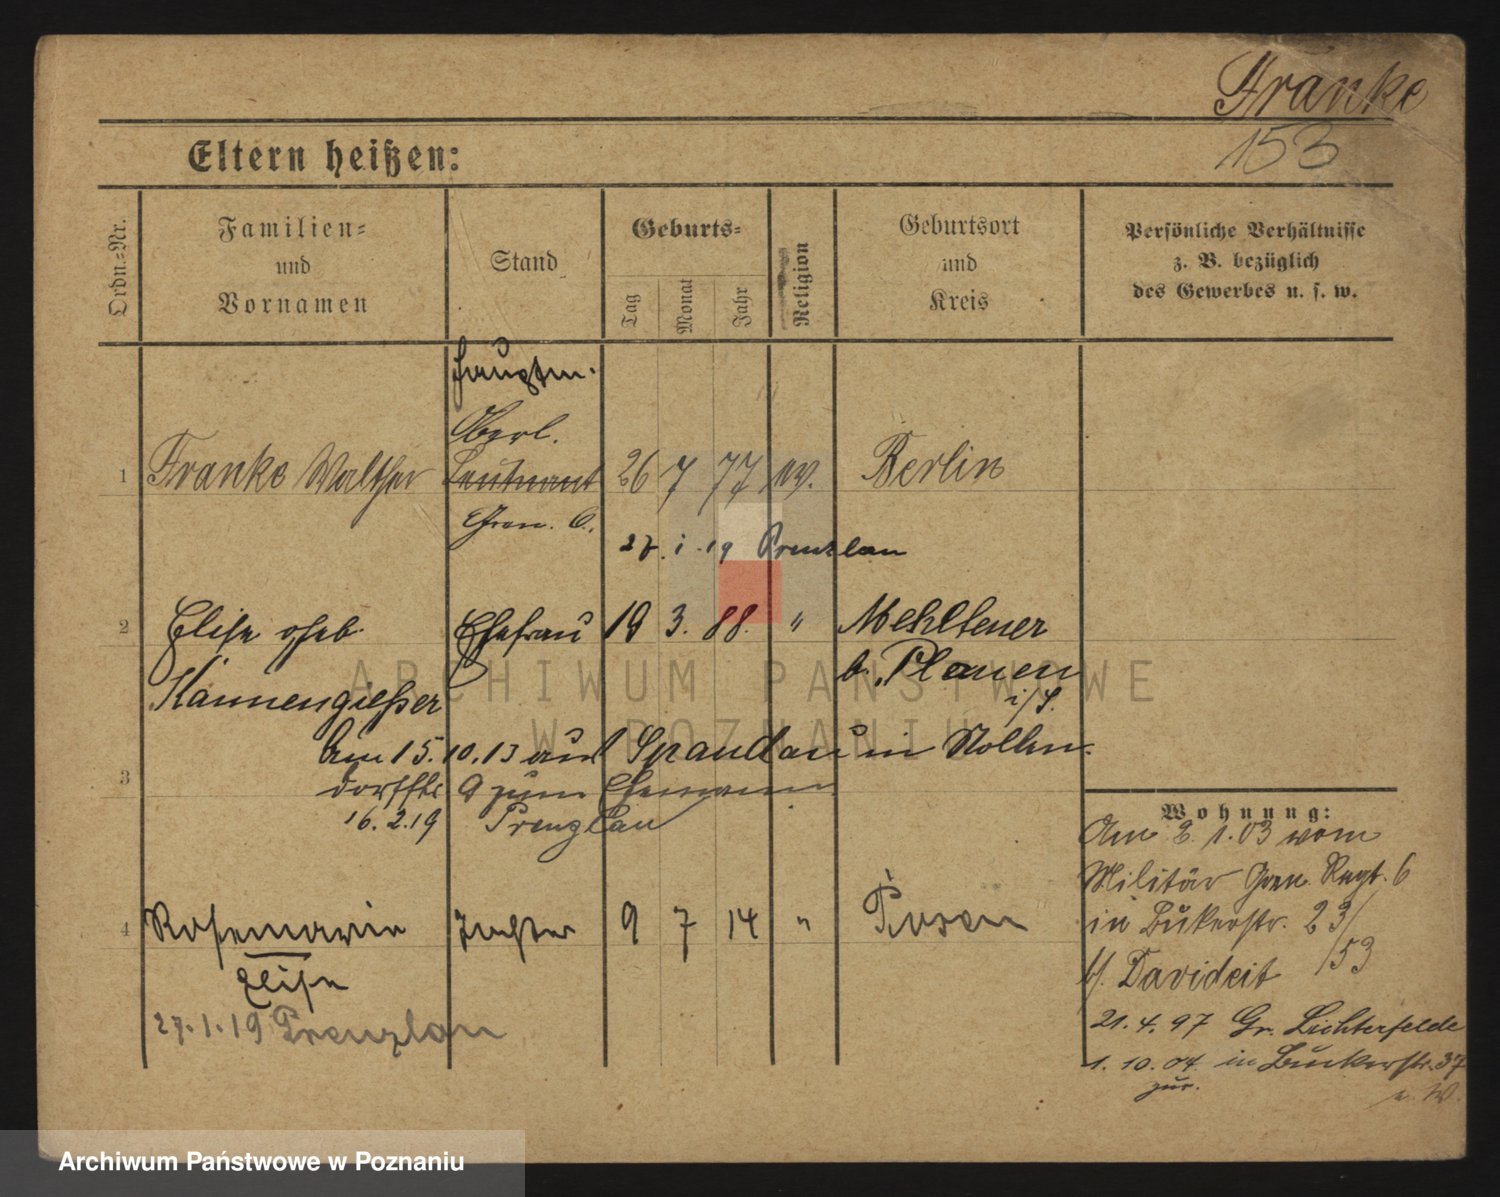 Franke
153
Eltern heißen:
Ordn.-Nr.
Familien-
und
Vornamen
Stand
Geburts-
Tag
Monat
Jahr
Religion
Geburtsort
und
Kreis
Persönliche Verhältnisse
z. B. bezüglich
des Gewerbes u. s. w.
Hauptm.
Oberl.
1 Franke Walther Leutnant 26 7 77 ev. Berlin
Gren. 6.
27. 1. 19 Prenzlau
2 Elise geb. Ehefrau 19 3. 88. " Mehltheuer
Kannengießer b. Plauen
i/S.
Am 15. 10. 13 aus Spandau in Nollen-
3 dorffstr 9 zum Ehemann
16. 2. 19 Prenzlau
Wohnung:
Am 2. 1. 03 vom
Militär Gren. Regt. 6
in Bukerstr. 23/
4 Rosemarie Tochter 9 7 14 " Posen
53
b/. Davideit
Elise
27. 1. 19 Prenzlau
21. 4. 97 Gr. Lichterfelde
1. 10. 04. in Bukerstr. 37
zur.
ARCHIWUM PAŃSTWOWE
W POZNANIU
Archiwum Państwowe w Poznaniu